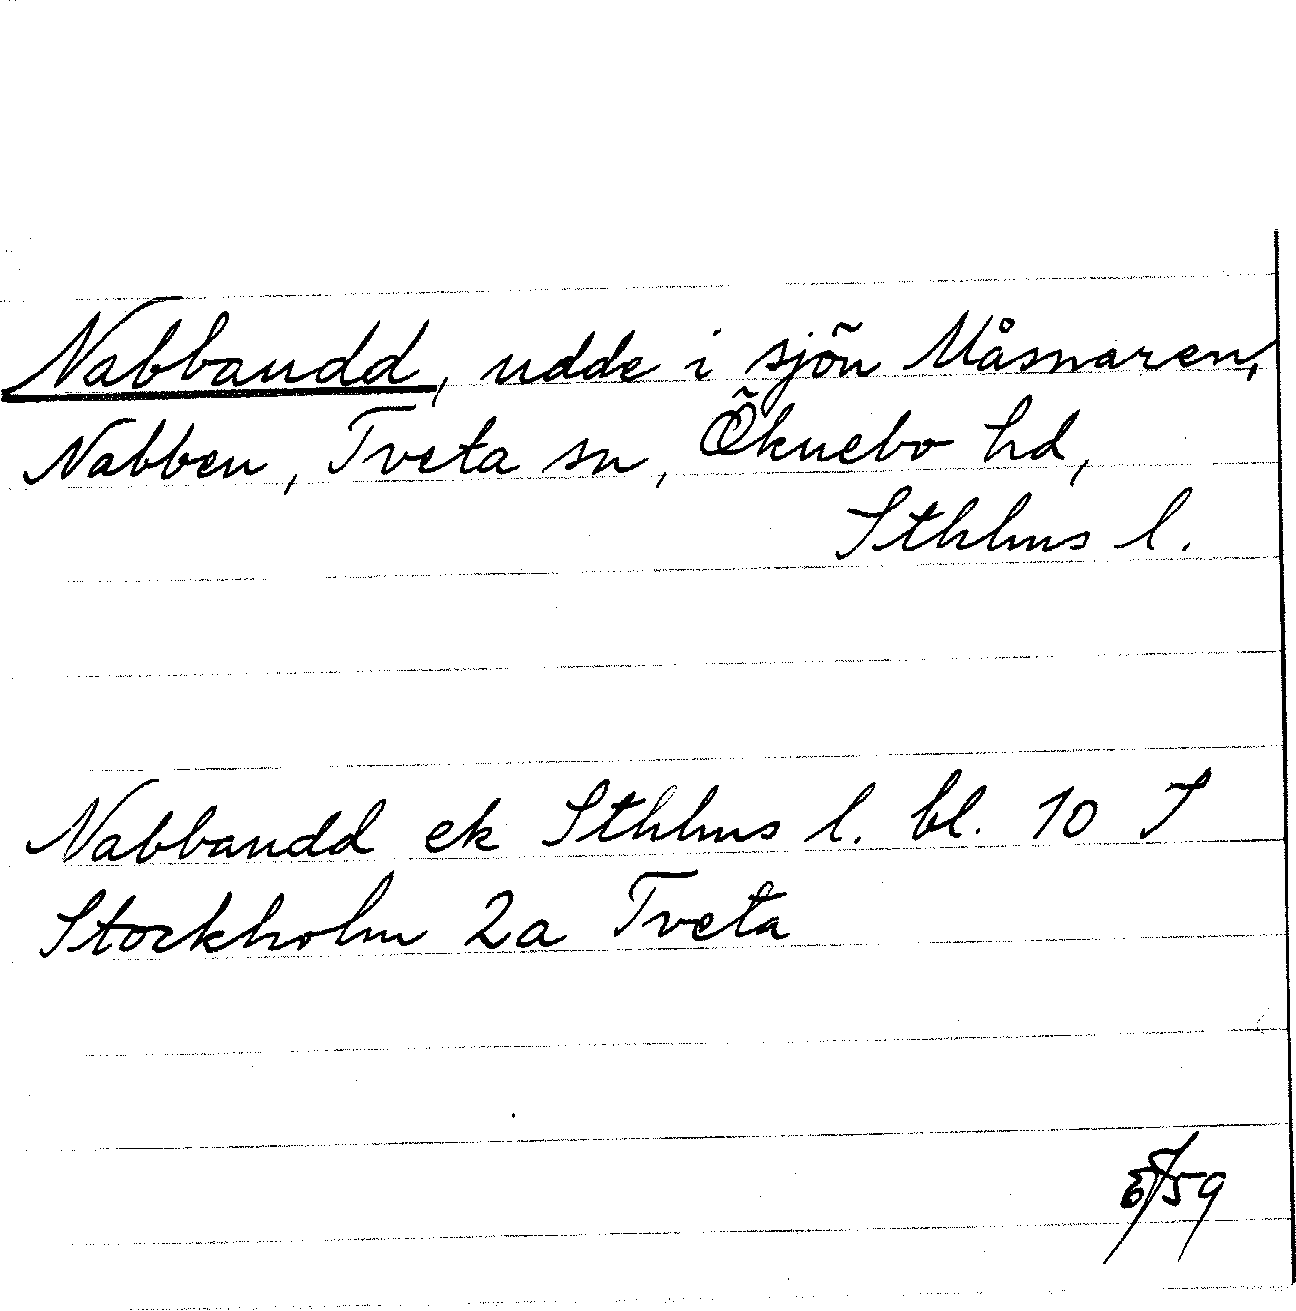 Nabbaudd, udde i sjön Måsnaren,
Nabben, Tveta sn, Öknebo hd,
Sthlms l.
Nabbaudd ek Sthlms l. bl. 10 S
Stockholm 2a Tveta
59